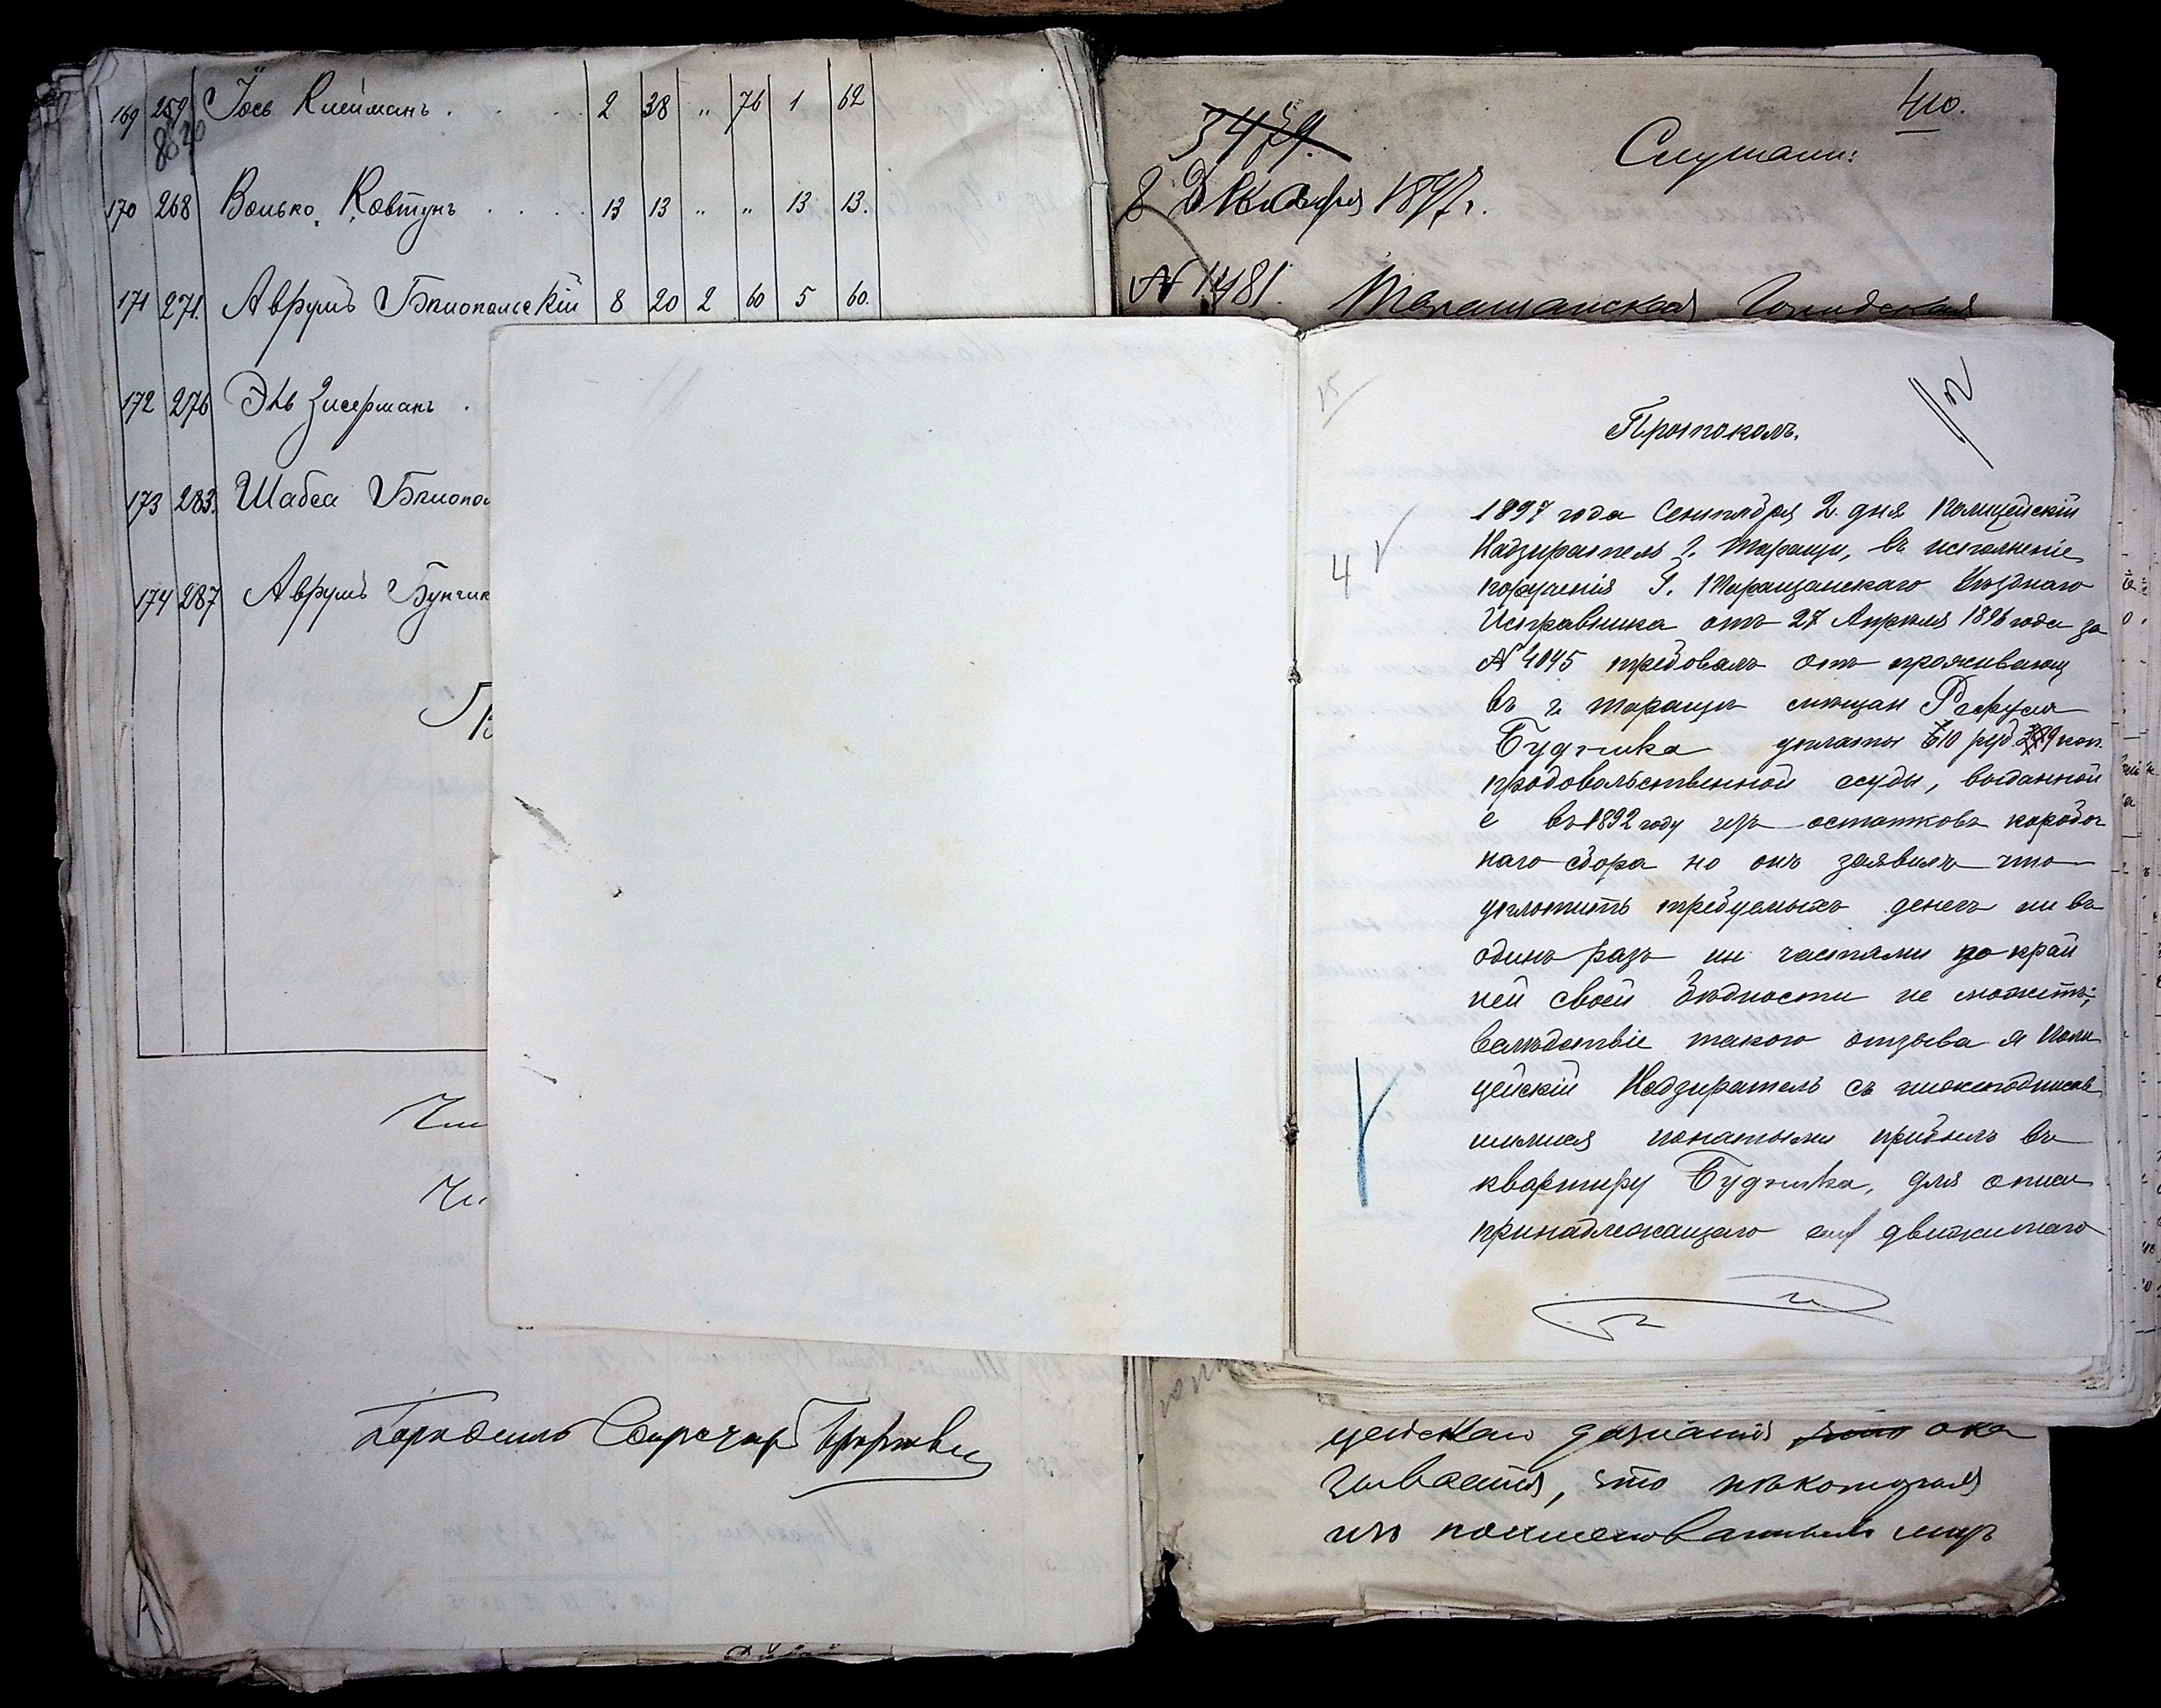 169 259 Іось Клейманъ . . . 2 38 „ 76 1 62
170 268 Волько Ковтунъ . . . . 13 13 „ „ 13 13.
171 271. Аврумъ Бѣлопольскій 8 20 2 60 5 60.
172 276 Эль Зисерманъ .
173 283. Шабса Бѣлопол
174 287 Аврумъ Бунчик
410.
Слушали:
8 Декабря 1897 г.
Таращанская Городская
Протоколъ.
1897 года Сентября 2 дня Полицейскій
Надзиратель г. Таращи, въ исполненіе
порученія Г. Таращанскаго Уѣзднаго
Исправника отъ 27 Апрѣля 1896 года за
№ 4045 требовалъ отъ проживающ
4
въ г. Таращѣ мѣщан
Будника уплаты 10 руб. 9 коп.
продовольственной ссуды, выданной
е въ 1892 году изъ остатковъ коробоч
наго сбора но онъ заявилъ что
уплотить требуемыхъ денегъ ни въ
одинъ разъ ни частями по край
ней своей бѣдности не можетъ;
вслѣдствіе такого отзыва я Поли
цейскій Надзиратель съ нижеподписав
шимися понятыми прибылъ въ
квартиру Будника, для описи
принадлежащаго ему движимаго
цейскаго дознанія ока
зывается, что нѣкоторыя
изъ поименованныхъ лицъ